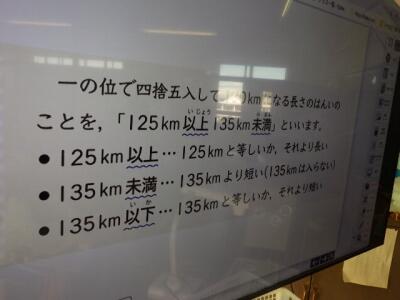 一の位で四捨五入して 0kmになる長さのはんいの
ことを,「125km以上135km未満」といいます。
●125km以上…125kmと等しいか,それより長い
●135km未満…135kmより短い(135kmは入らない)
●135km以下…135kmと等しいか,それより短い